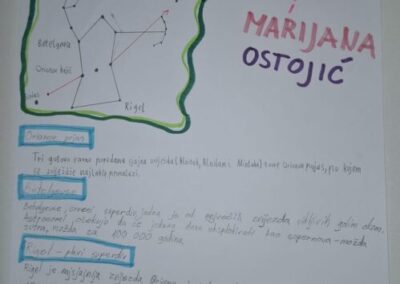 i
MARIJANA
OSTOJIĆ
Betelgeuse
Orionov
Rigel
Orionov pojas
Tri gotovo ravno poredane sjajne zvijezde (Alnitak, Alnilam i Mintaka) tvore Orionov Pojas, po kojem
se zviježđe najlakše pronalazi.
Betelgeuse
Betelgeuse, crveni superdiv, jedna je od najvećih zvijezda vidljivih golim okom.
Astronomi očekuju da će jednog dana eksplodirati kao supernova – možda
sutra, možda za 100 000 godina.
Rigel – plavi superdiv
Rigel je najsjajnija zvijezda